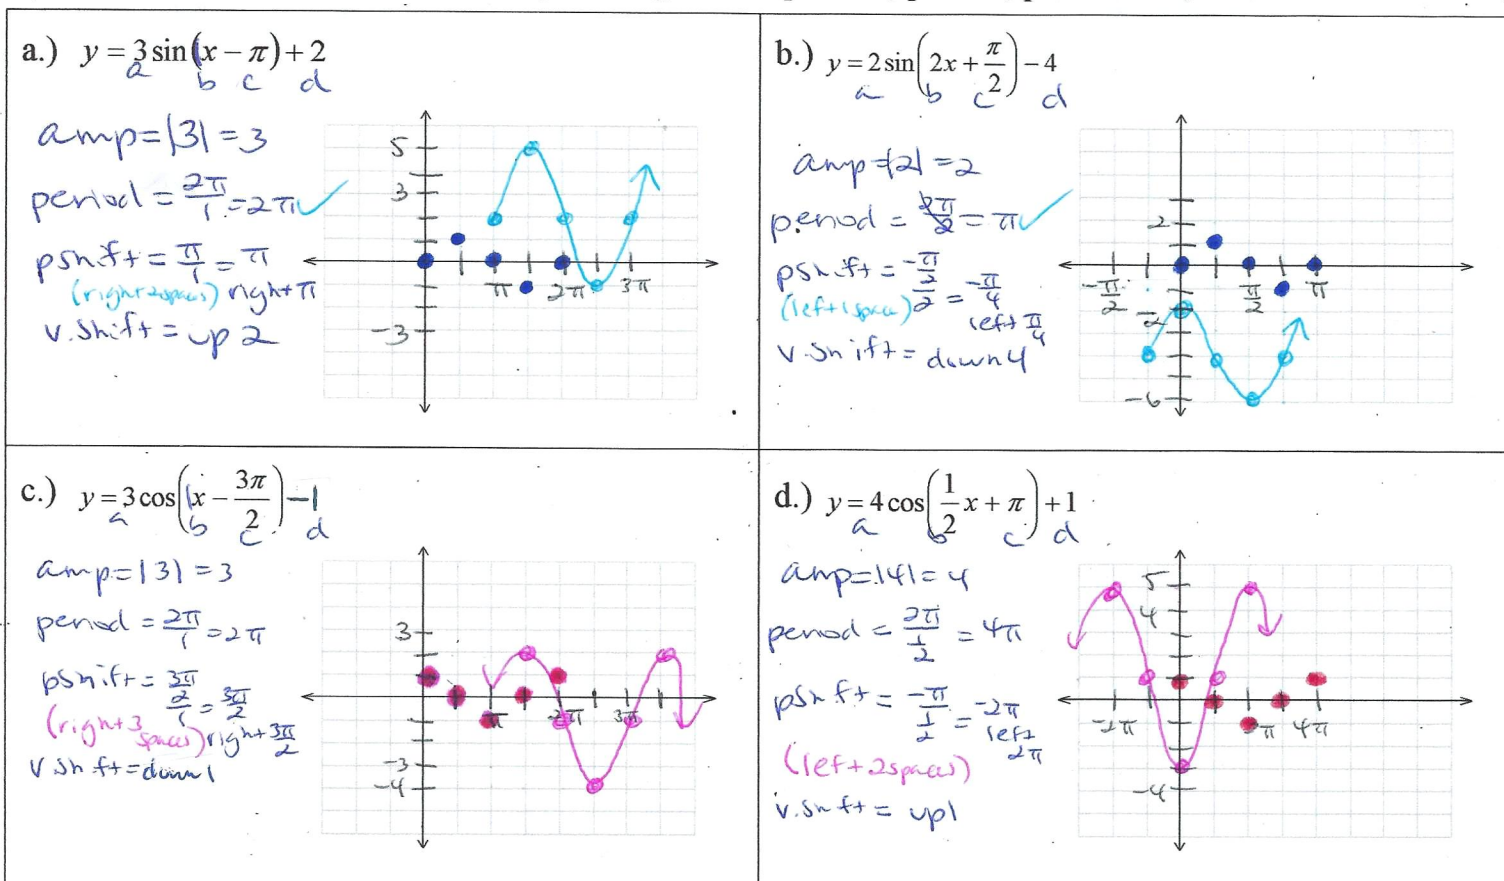 a.) y = 3 sin(1x − π) + 2
a b c d
amp = |3| = 3
period = 2π/1 = 2π ✓
pshift = π/1 = π
(right 2 spaces) right π
v. shift = up 2
5
3
π 2π 3π
−3
b.) y = 2 sin(2x + π/2) − 4
a b c d
amp = |2| = 2
period = 2π/2 = π ✓
pshift = −π/2/2 = −π/4
(left 1 space) left π/4
v. shift = down 4
2
−π/2 π/2 π
−2
−6
c.) y = 3 cos(1x − 3π/2) − 1
a b c d
amp = |3| = 3
period = 2π/1 = 2π
pshift = 3π/2/1 = 3π/2
(right 3 spaces) right 3π/2
v. shift = down 1
3
π 2π 3π
−3
−4
d.) y = 4 cos(1/2 x + π) + 1
a b c d
amp = |4| = 4
period = 2π/1/2 = 4π
pshift = −π/1/2 = −2π
left 2π
(left 2 spaces)
v. shift = up 1
5
4
−2π π 4π
−4